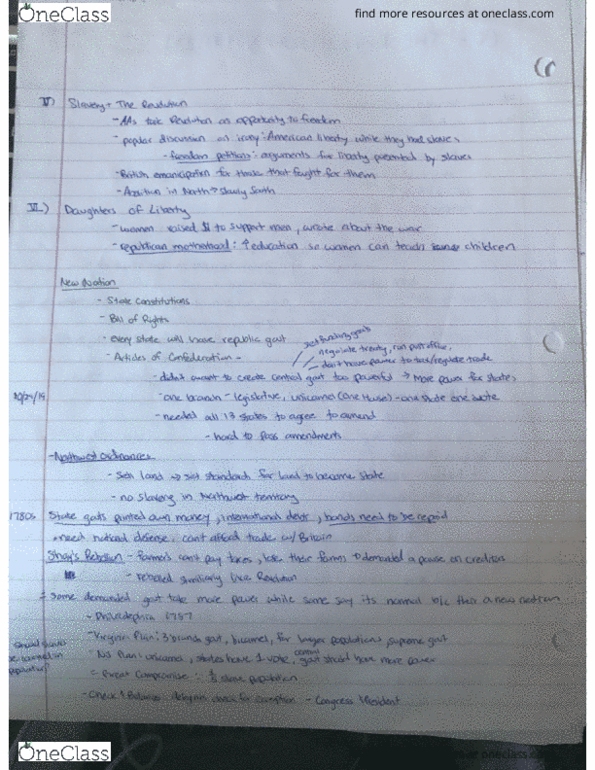 OneClass
find more resources at oneclass.com
V) Slavery + The Revolution
- AAs took Revolution as opportunity to freedom
- popular discussion on irony: American liberty while they had slaves
- freedom petitions: arguments for liberty presented by slaves
- British emancipation for those that fought for them
- Abolition in North → slowly South
VI.) Daughters of Liberty
- women raised $ to support men, wrote about the war
- republican motherhood: ↑ education so women can teach children
New Nation
- State Constitutions
- Bill of Rights
- every state will have republic govt
- Articles of Confederation -
negotiate treaty, run post office,
don't have power to tax/regulate trade
- didn't want to create central govt too powerful → more power for states
- one branch - legislative, unicameral (one House) - one state one vote
- needed all 13 states to agree to amend
- hard to pass amendments
- Northwest Ordinances
- sell land → set standards for land to become state
- no slavery in Northwest territory
1780s State govts printed own money, international debts, bonds need to be repaid
need national defense, can't afford trade w/ Britain
Shay's Rebellion - farmers can't pay taxes, lose their farms → demanded a pause on creditors
- rebelled similarly like Revolution
some demanded govt take more power while some say its normal b/c this a new nation
- Philadelphia 1787
- Virginia Plan: 3 branch govt, bicameral, for larger populations, supreme govt
- NJ Plan: unicameral, states have 1 vote, central govt should have more power
= Great Compromise: 3/5 slave population
- Check & Balances: - Congress President
OneClass